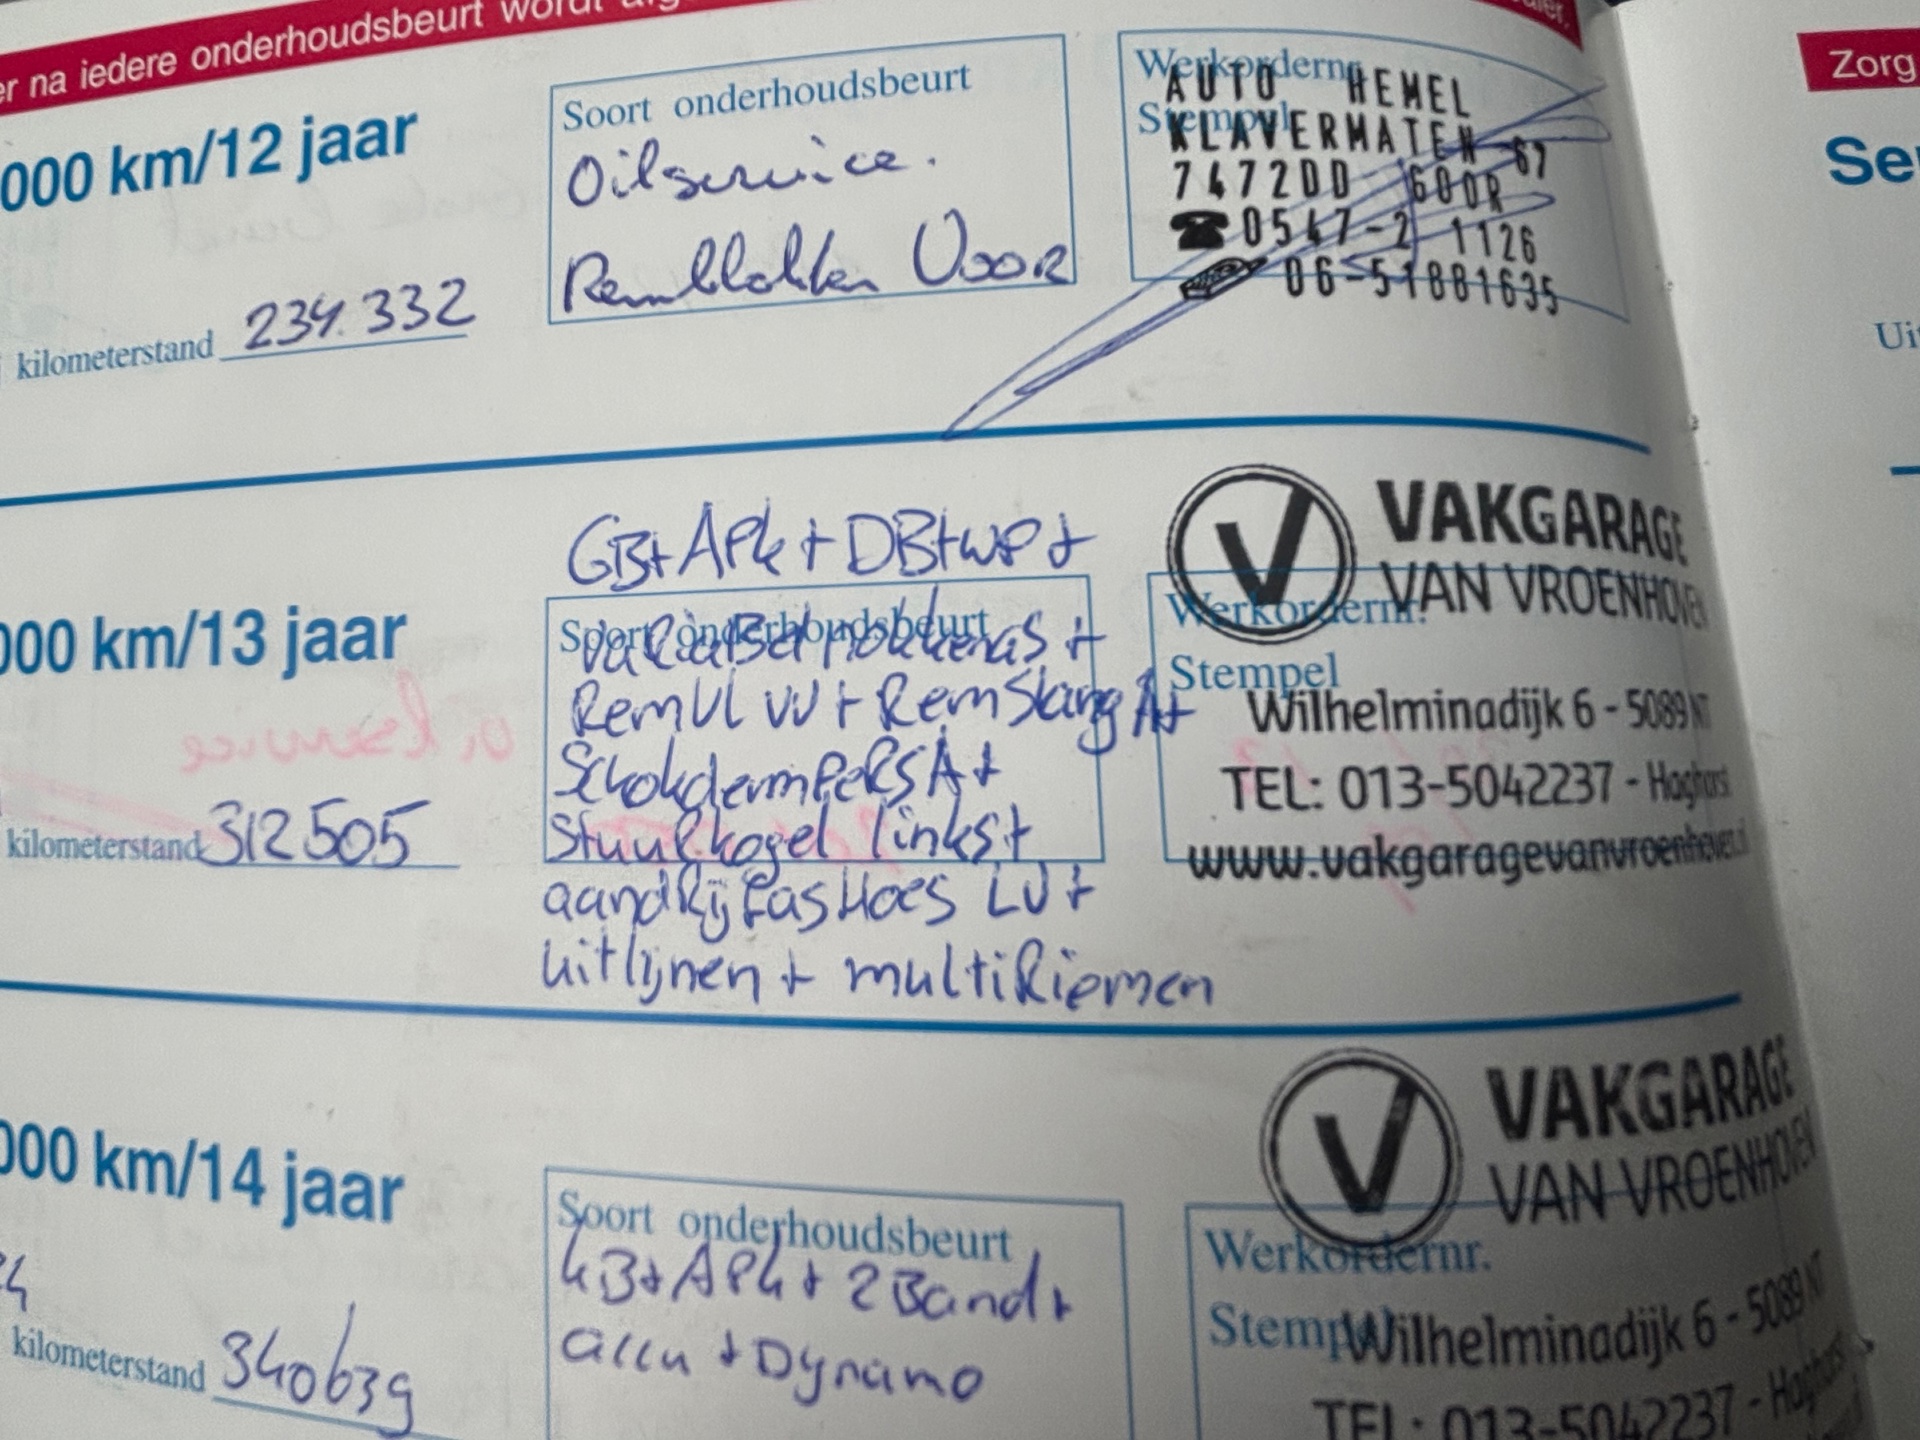 er na iedere onderhoudsbeurt wordt
000 km/12 jaar
kilometerstand 234.332
Soort onderhoudsbeurt
Oilservice.
Remblokken Voor
Werkordernr.
Stempel
AUTO HEMEL
KLAVERMATEN 67
7472DD GOOR
☎ 0547-2 1126
06-51881635
000 km/13 jaar
kilometerstand 312505
GB+APk+DB+WP+
Soort onderhoudsbeurt
RemVl VV+RemSlang A+
SchokdempeRS A+
Stuurkogel links+
aandRijfasHoes LV+
uitlijnen + multiRiemen
VAKGARAGE
VAN VROENHOVEN
Werkordernr.
Stempel
Wilhelminadijk 6 - 5089 NT
TEL: 013-5042237 - Haghorst
www.vakgaragevanvroenhoven.nl
000 km/14 jaar
kilometerstand 340639
Soort onderhoudsbeurt
kB+APk+2Band+
accu+Dynamo
VAKGARAGE
VAN VROENHOVEN
Werkordernr.
Stempel
Wilhelminadijk 6 - 5089 NT
TEL: 013-5042237 - Haghorst
Zorg
Se
Ui